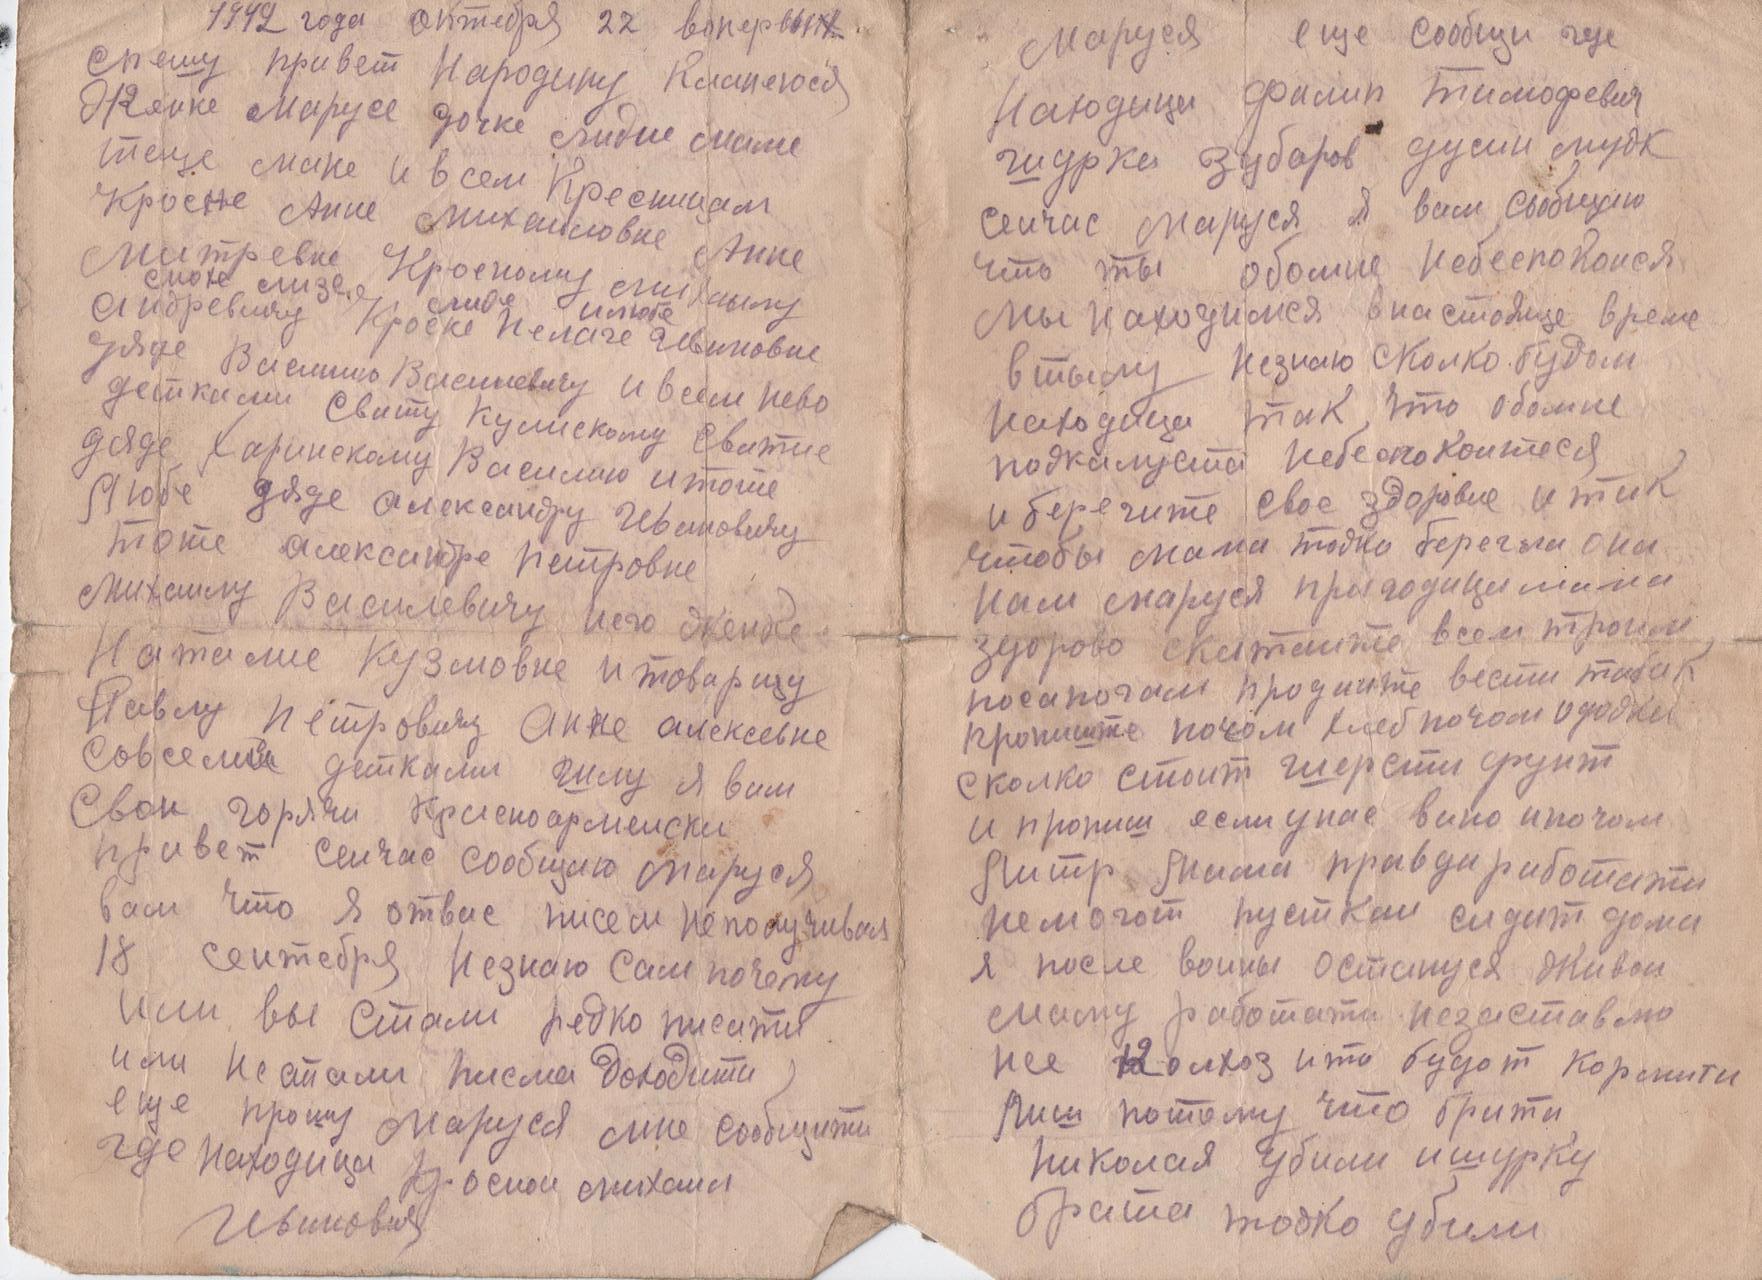 1942 года октября 22 вопервых
спешу привет Народину Кланеюся
Жянке Марусе дочке лидие маме
теще мане и всем Кресницам
Кросне Анне Михаиловне Анне
Митревне Кросному михаилу
снохе лизе лиде илюбе
андревичу Кроске Пелаге Ивановне
дяде Василию Василевичу и всем нево
детками Свату Кулискому сватие
дяде Харинскому Василию итоте
Любе дяде александру Ивановичу
тоте александре петровне
михаилу Василевичу иего женке
Наталие Кузмовне итоварищу
Павлу петровичу анне алексевне
совсеми детками шлу я вам
свои горячи красноармеиски
привет сеичас сообщаю маруся
вам что я отвас писем неполучивал
18 сентября незнаю сам почему
или вы стали редко писати
или нестали писма доходити
еще прошу маруся мне сообщити
где находица Кроснои михаил
Иванович
Маруся еще сообщи где
находица филип тимофевич
шурка зубаров дусин мужк
сеичас маруся я вам сообщаю
что ты обомне небеспокоися
мы находимся внастояще време
втылу незнаю сколко будом
находица так что обомне
подкалуста небеспокоитеся
и беречите свое здоровие итак
чтобы мама тодко берегла она
нам маруся пригодица мама
здорово скатаите всем троим
посапогам продаите вести табак
пропишите почом хлеб почом ододки
сколко стоит шерсти фунт
и пропиш если унас вино ипочом
Литр Мама правда работати
неможот пусткаи сидит дома
я после воины остануся живои
маму работати незаставлю
нее колхоз ито будот кормити
Лиш потому что брата
николая убили ишурку
брата тодко убили